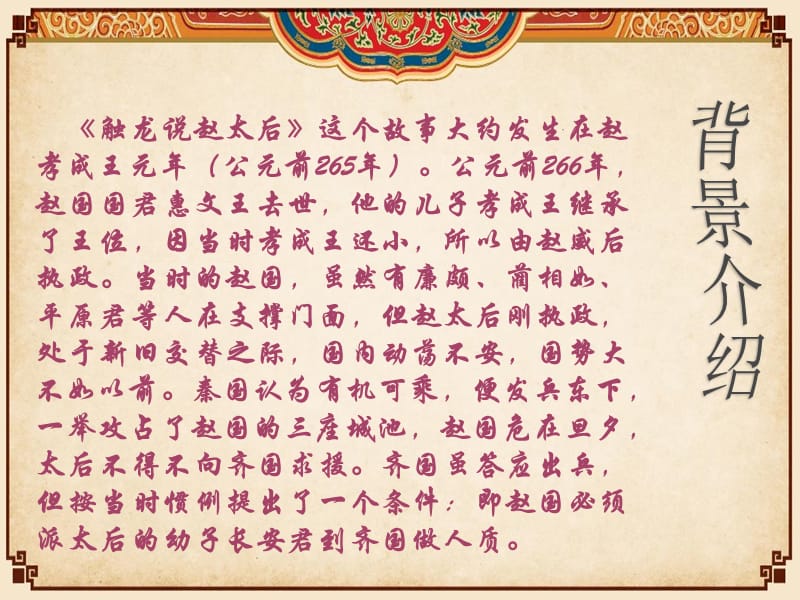 背景介绍
《触龙说赵太后》这个故事大约发生在赵
孝成王元年（公元前265年）。公元前266年，
赵国国君惠文王去世，他的儿子孝成王继承
了王位，因当时孝成王还小，所以由赵威后
执政。当时的赵国，虽然有廉颇、蔺相如、
平原君等人在支撑门面，但赵太后刚执政，
处于新旧交替之际，国内动荡不安，国势大
不如以前。秦国认为有机可乘，便发兵东下，
一举攻占了赵国的三座城池，赵国危在旦夕，
太后不得不向齐国求援。齐国虽答应出兵，
但按当时惯例提出了一个条件：即赵国必须
派太后的幼子长安君到齐国做人质。